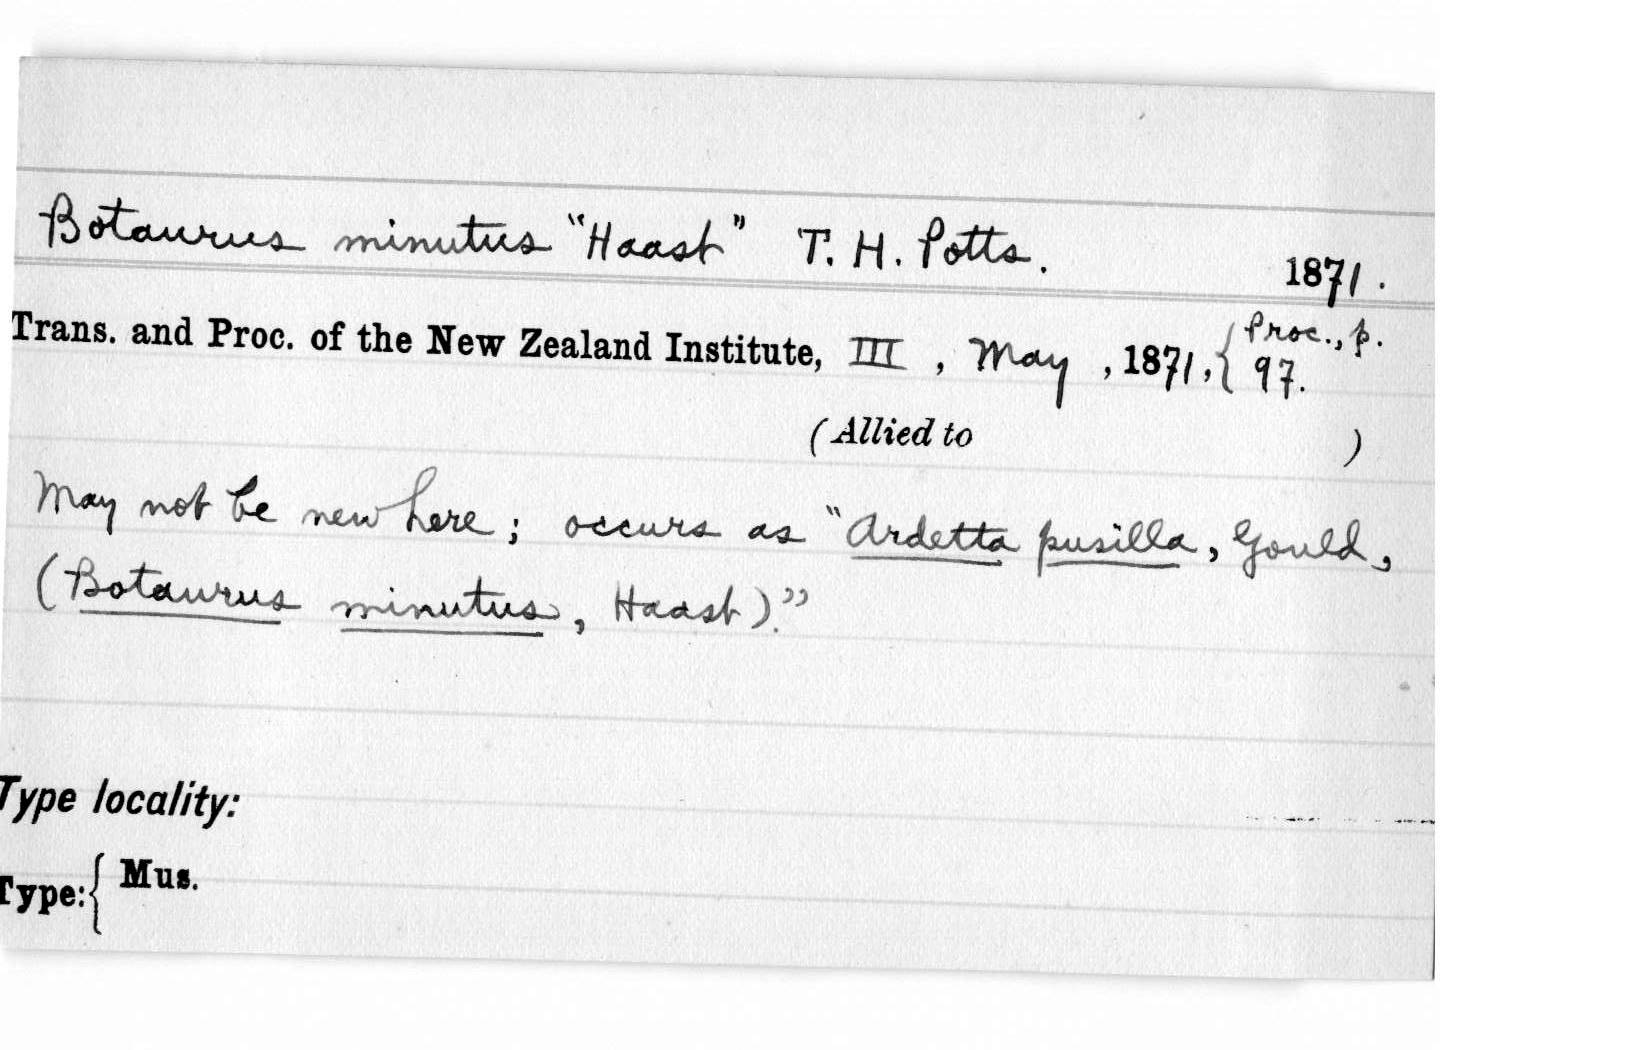 Botaurus minutus "Haast" T. H. Potts. 1871.
Trans. and Proc. of the New Zealand Institute, III, May, 1871, { Proc., p. 97.
(Allied to )
May not be new here; occurs as "Ardetta pusilla, Gould,
(Botaurus minutus, Haast)."
Type locality:
Type: { Mus.